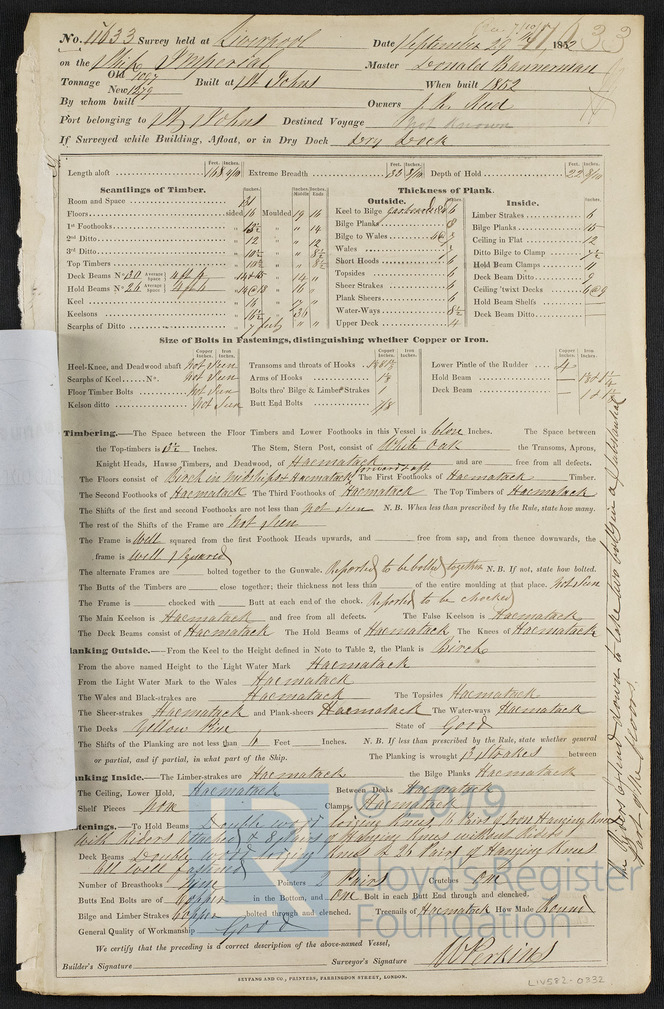 No. 11633 Survey held at Liverpool Date September 29th 1852
on the Ship Imperial Master Donald Bannerman
Tonnage Old 1097 New 1279 Built at St Johns When built 1852
By whom built Owners J. K. Reed
Port belonging to St Johns Destined Voyage Not Known
If Surveyed while Building, Afloat, or in Dry Dock Dry Dock
Feet. Inches. Feet. Inches. Feet. Inches.
Length aloft 168 Extreme Breadth Depth of Hold 22 8/10
Scantlings of Timber. Thickness of Plank.
Outside. Inside.
Room and Space
Floors sided 16 Moulded 19 16
1st Foothooks " " 14
2nd Ditto " 12 " 12
3rd Ditto " 10½ " 8½
Top Timbers " 10½ " 8½
Deck Beams No. 30 Average Space 4 ft
Hold Beams No. 26 Average Space
Keel
Keelsons
Scarphs of Ditto 7 feet
Keel to Bilge 6
Bilge Planks 8
Bilge to Wales
Wales
Short Hoods 6
Topsides 6
Sheer Strakes 6
Plank Sheers 6
Water-Ways 8½
Upper Deck 4
Limber Strakes 6
Bilge Planks 10
Ceiling in Flat 12
Ditto Bilge to Clamp 7½
Hold Beam Clamps
Deck Beam Ditto 9
Ceiling 'twixt Decks 6@9
Hold Beam Shelfs
Deck Beam Ditto
Size of Bolts in Fastenings, distinguishing whether Copper or Iron.
Copper Inches. Iron Inches. Copper Inches. Iron Inches. Copper Inches. Iron Inches.
Heel-Knee, and Deadwood abaft Not Seen
Scarphs of Keel No. Not Seen
Floor Timber Bolts Not Seen
Kelson ditto Not Seen
Transoms and throats of Hooks
Arms of Hooks 1⅛
Bolts thro' Bilge & Limber Strakes 1
Butt End Bolts 7/8
Lower Pintle of the Rudder 4
Hold Beam
Deck Beam
Timbering.—The Space between the Floor Timbers and Lower Foothooks in this Vessel is Inches. The Space between
the Top-timbers is Inches. The Stem, Stern Post, consist of White Oak the Transoms, Aprons,
Knight Heads, Hawse Timbers, and Deadwood, of Haematack and are free from all defects.
The Floors consist of Birch in midships & Haematack forward & aft The First Foothooks of Haematack Timber.
The Second Foothooks of Haematack The Third Foothooks of Haematack The Top Timbers of Haematack
The Shifts of the first and second Foothooks are not less than Not Seen N. B. When less than prescribed by the Rule, state how many.
The rest of the Shifts of the Frame are Not Seen
The Frame is Well squared from the first Foothook Heads upwards, and free from sap, and from thence downwards, the
frame is Well Squared
The alternate Frames are bolted together to the Gunwale. Reported to be bolted together N. B. If not, state how bolted.
The Butts of the Timbers are close together; their thickness not less than of the entire moulding at that place. Not Seen
The Frame is chocked with Butt at each end of the chock. Reported to be chocked
The Main Keelson is Haematack and free from all defects. The False Keelson is Haematack
The Deck Beams consist of Haematack The Hold Beams of Haematack The Knees of Haematack
Planking Outside.—From the Keel to the Height defined in Note to Table 2, the Plank is Birch
From the above named Height to the Light Water Mark Haematack
From the Light Water Mark to the Wales Haematack
The Wales and Black-strakes are Haematack The Topsides Haematack
The Sheer-strakes Haematack and Plank-sheers Haematack The Water-ways Haematack
The Decks Yellow Pine State of Good
The Shifts of the Planking are not less than 6 Feet Inches. N. B. If less than prescribed by the Rule, state whether general
or partial, and if partial, in what part of the Ship. The Planking is wrought 3 Strakes between
Planking Inside.—The Limber-strakes are Haematack the Bilge Planks Haematack
The Ceiling, Lower Hold, Haematack Between Decks Haematack
Shelf Pieces None Clamps Haematack
Fastenings.—To Hold Beams Double wood lodging knees 16 Pairs of Iron Hanging knees
With Riders attached & 8 pairs of Hanging knees without Riders
Deck Beams Double wood lodging knees & 26 Pairs of Hanging knees
All Well fastened
Number of Breasthooks Nine Pointers 2 Pairs Crutches One
Butts End Bolts are of Copper in the Bottom, and One Bolt in each Butt End through and clenched.
Bilge and Limber Strakes Copper bolted through and clenched. Treenails of Haematack How Made Round
General Quality of Workmanship Good
We certify that the preceding is a correct description of the above-named Vessel,
Builder's Signature Surveyor's Signature W Perkins
SEYFANG AND CO., PRINTERS, FARRINGDON STREET, LONDON.
LIV582-0332
the Riders extend down to take two bolts in a substantial
part of the floors.
© 2019
Lloyd's Register
Foundation